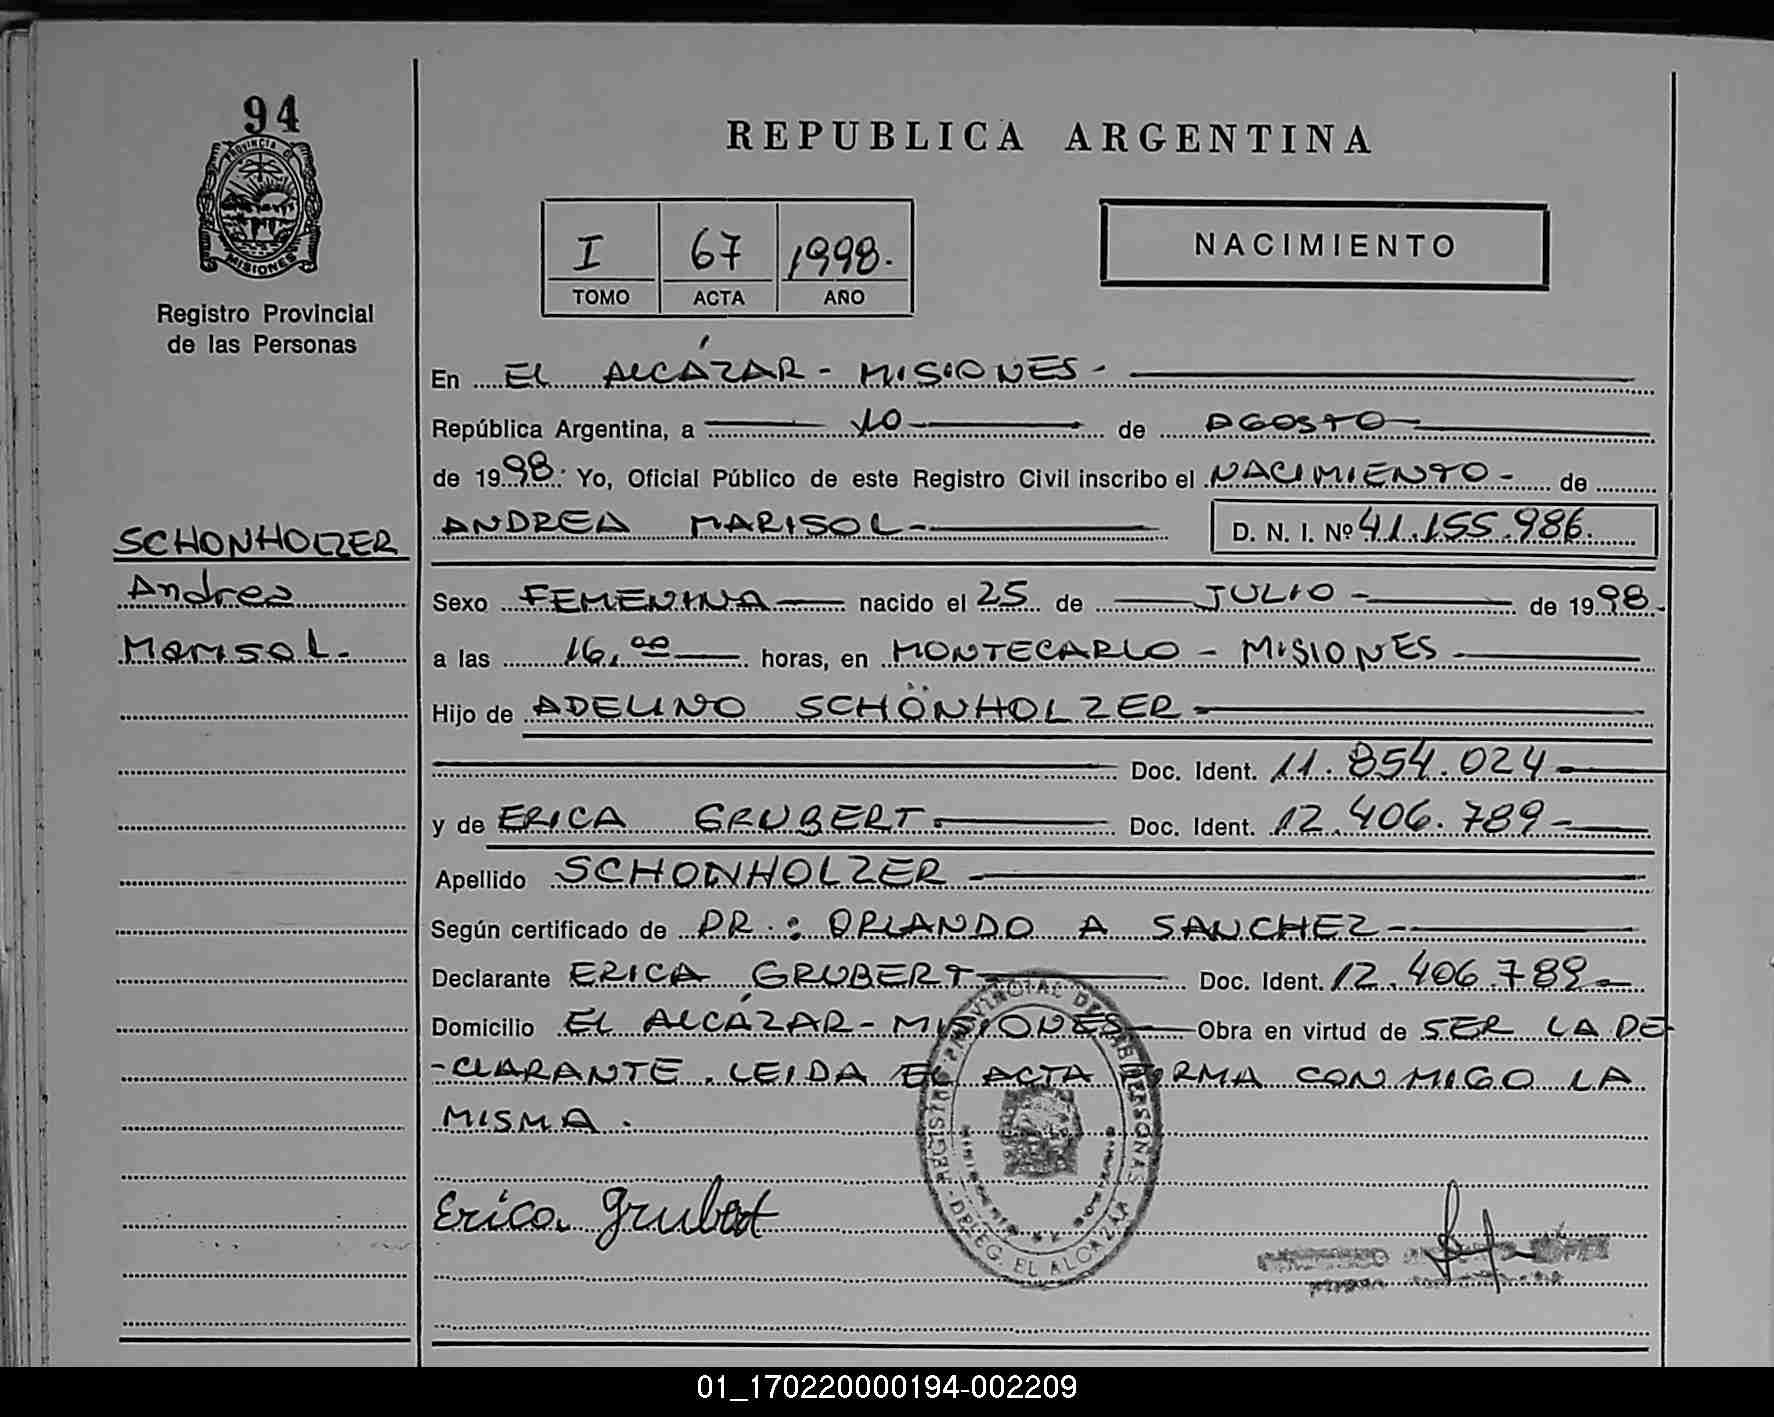 94
PROVINCIA DE
MISIONES
Registro Provincial
de las Personas
SCHONHOLZER
Andrea
Marisol.
REPUBLICA ARGENTINA
I 67 1998.
TOMO ACTA AÑO
NACIMIENTO
En EL ALCÁZAR - MISIONES -
República Argentina, a 10 de AGOSTO
de 1998. Yo, Oficial Público de este Registro Civil inscribo el NACIMIENTO - de
ANDREA MARISOL - D. N. I. Nº 41.155.986.
Sexo FEMENINA nacido el 25 de JULIO - de 1998.
a las 16,00 horas, en MONTECARLO - MISIONES -
Hijo de ADELINO SCHÖNHOLZER -
Doc. Ident. 11.854.024 -
y de ERICA GRUBERT. Doc. Ident. 12.406.789 -
Apellido SCHONHOLZER -
Según certificado de DR.: ORLANDO A SANCHEZ -
Declarante ERICA GRUBERT - Doc. Ident. 12.406.789 -
Domicilio EL ALCÁZAR - MISIONES Obra en virtud de SER LA DE
-CLARANTE. LEIDA EL ACTA FIRMA CONMIGO LA
MISMA.
REGISTRO PROVINCIAL DE LAS PERSONAS
DELEG. EL ALCAZAR
Erica Grubert
01_170220000194-002209